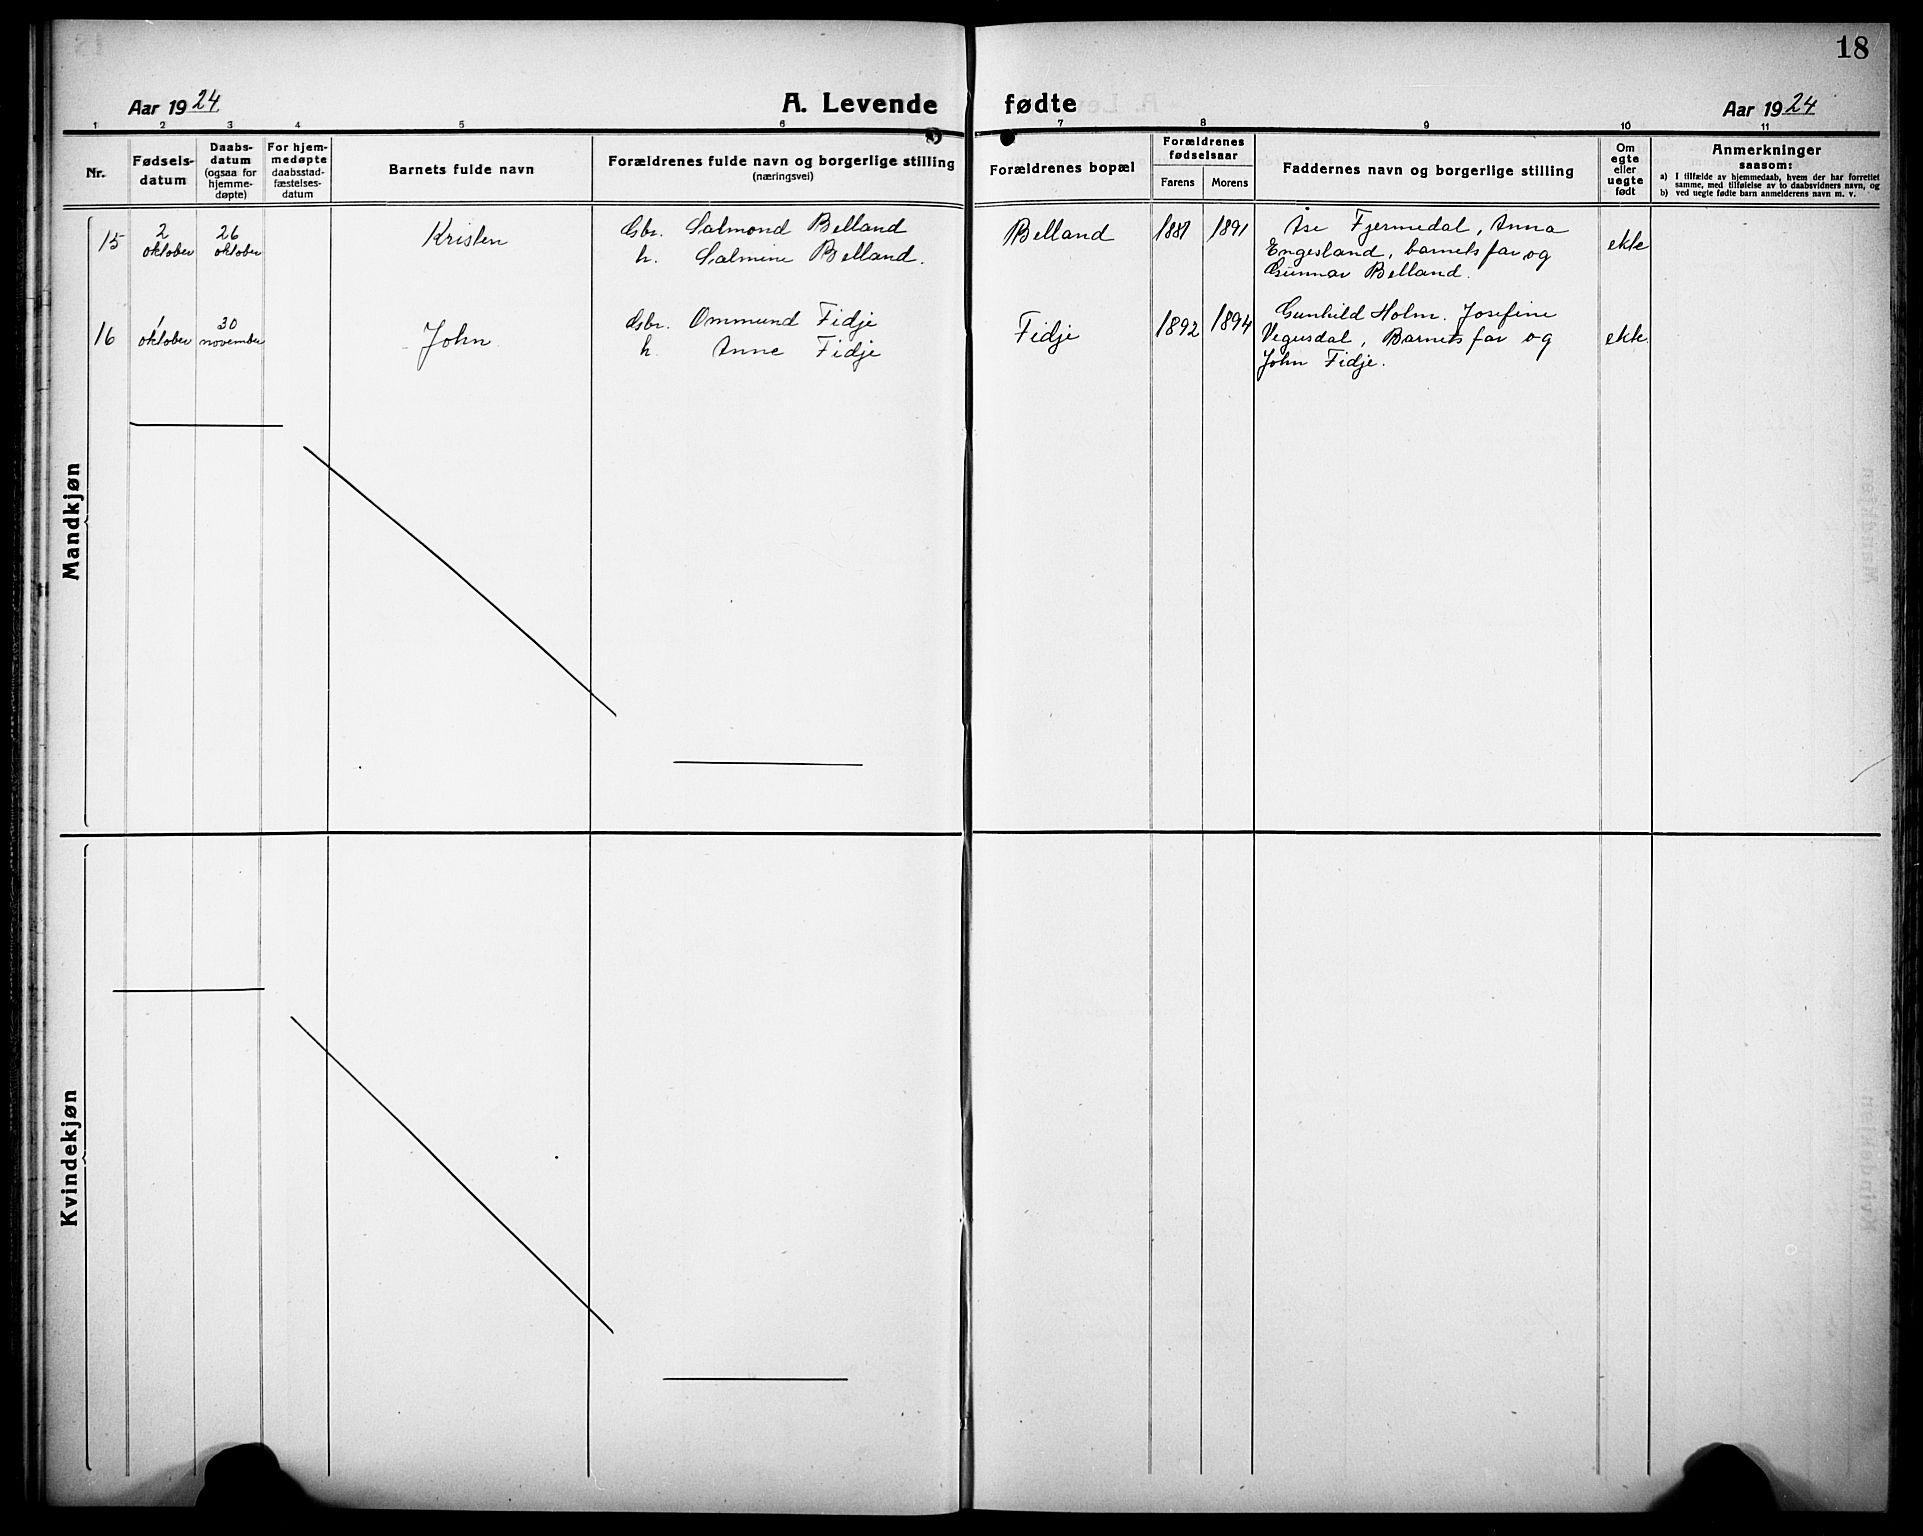 18
Aar 1924
A. Levende fødte
Aar 1924
1 2 3 4 5 6 7 8 9 10 11
Nr.
Fødsels-
datum
Daabs-
datum
(ogsaa for
hjemme-
døpte)
For hjem-
medøpte
daabsstad-
fæstelses-
datum
Barnets fulde navn
Forældrenes fulde navn og borgerlige stilling
(næringsvei)
Forældrenes bopæl
Forældrenes
fødselsaar
Farens Morens
Faddernes navn og borgerlige stilling
Om
egte
eller
uegte
født
Anmerkninger
saasom:
a) I tilfælde av hjemmedaab, hvem der har forrettet
samme, med tilføielse av to daabsvidners navn, og
b) ved uegte fødte barn anmelderens navn m. v.
Mandkjøn
15
2
oktober
26
oktober
Kristen
Gbr. Salmond Belland
h. Salmine Belland.
Belland
1881
1891
Åse Fjermedal, Anna
Engesland, barnets far og
Gunnar Belland.
ekte
16
1
oktober
30
november
John
Gbr. Ommund Fidje
h. Anne Fidje
Fidje
1892
1894
Gunhild Holm. Josefine
Vegusdal, Barnets far og
John Fidje.
ekte.
Kvindekjøn